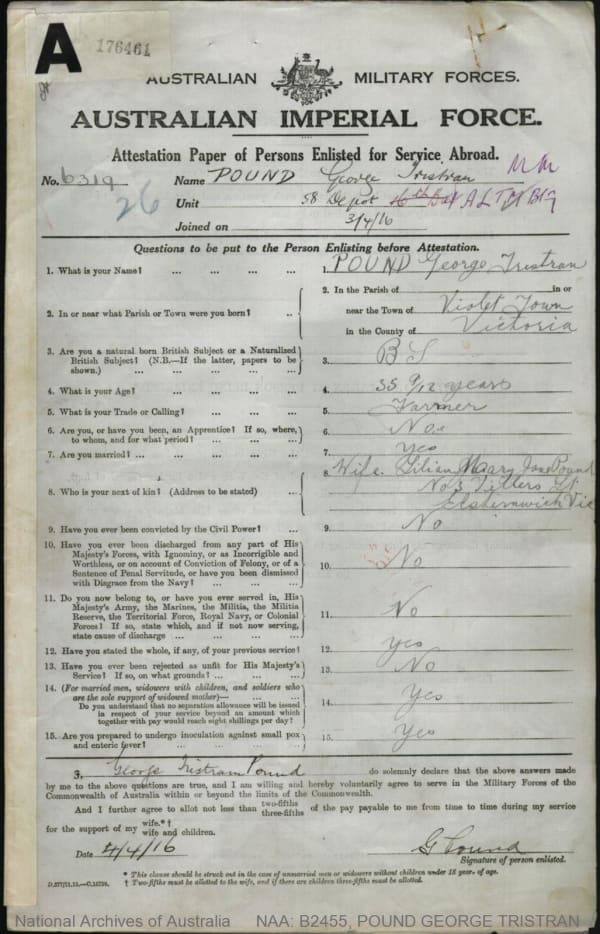 A
176461
AUSTRALIAN MILITARY FORCES.
AUSTRALIAN IMPERIAL FORCE.
Attestation Paper of Persons Enlisted for Service Abroad.
No. 6319 Name POUND George Tristran MM
26 Unit 58 Depot 16th Bat A L T M B'ty
Joined on 3/4/16
Questions to be put to the Person Enlisting before Attestation.
1. What is your Name? ... ... ... ... 1. POUND George Tristran
2. In or near what Parish or Town were you born? ... 2. In the Parish of in or
near the Town of Violet Town
in the County of Victoria
3. Are you a natural born British Subject or a Naturalized
British Subject? (N.B.—If the latter, papers to be
shown.) ... ... ... ... ... 3. B S
4. What is your Age? ... ... ... ... 4. 35 9/12 years
5. What is your Trade or Calling? ... ... ... 5. Farmer
6. Are you, or have you been, an Apprentice? If so, where,
to whom, and for what period? ... ... ... 6. No
7. Are you married? ... ... ... ... ... 7. yes
8. Who is your next of kin? (Address to be stated) ... 8. Wife. Lilian Mary Jane Pound
No 3 Villers St
Elsternwich Vic
9. Have you ever been convicted by the Civil Power? ... 9. No
10. Have you ever been discharged from any part of His
Majesty's Forces, with Ignominy, or as Incorrigible and
Worthless, or on account of Conviction of Felony, or of a
Sentence of Penal Servitude, or have you been dismissed
with Disgrace from the Navy? ... ... ... 10. No
11. Do you now belong to, or have you ever served in, His
Majesty's Army, the Marines, the Militia, the Militia
Reserve, the Territorial Force, Royal Navy, or Colonial
Forces? If so, state which, and if not now serving,
state cause of discharge ... ... ... ... 11. No
12. Have you stated the whole, if any, of your previous service? 12. yes
13. Have you ever been rejected as unfit for His Majesty's
Service? If so, on what grounds? ... ... ... 13. No
14. (For married men, widowers with children, and soldiers who
are the sole support of widowed mother)—
Do you understand that no separation allowance will be issued
in respect of your service beyond an amount which
together with pay would reach eight shillings per day? 14. Yes
15. Are you prepared to undergo inoculation against small pox
and enteric fever? ... ... ... ... 15. Yes
I, George Tristram Pound do solemnly declare that the above answers made
by me to the above questions are true, and I am willing and hereby voluntarily agree to serve in the Military Forces of the
Commonwealth of Australia within or beyond the limits of the Commonwealth.
And I further agree to allot not less than two-fifths three-fifths of the pay payable to me from time to time during my service
for the support of my wife.*† wife and children.
Date 4/4/16 G Pound
Signature of person enlisted.
* This clause should be struck out in the case of unmarried men or widowers without children under 18 year. of age.
† Two-fifths must be allotted to the wife, and if there are children three-fifths must be allotted.
National Archives of Australia NAA: B2455, POUND GEORGE TRISTRAN